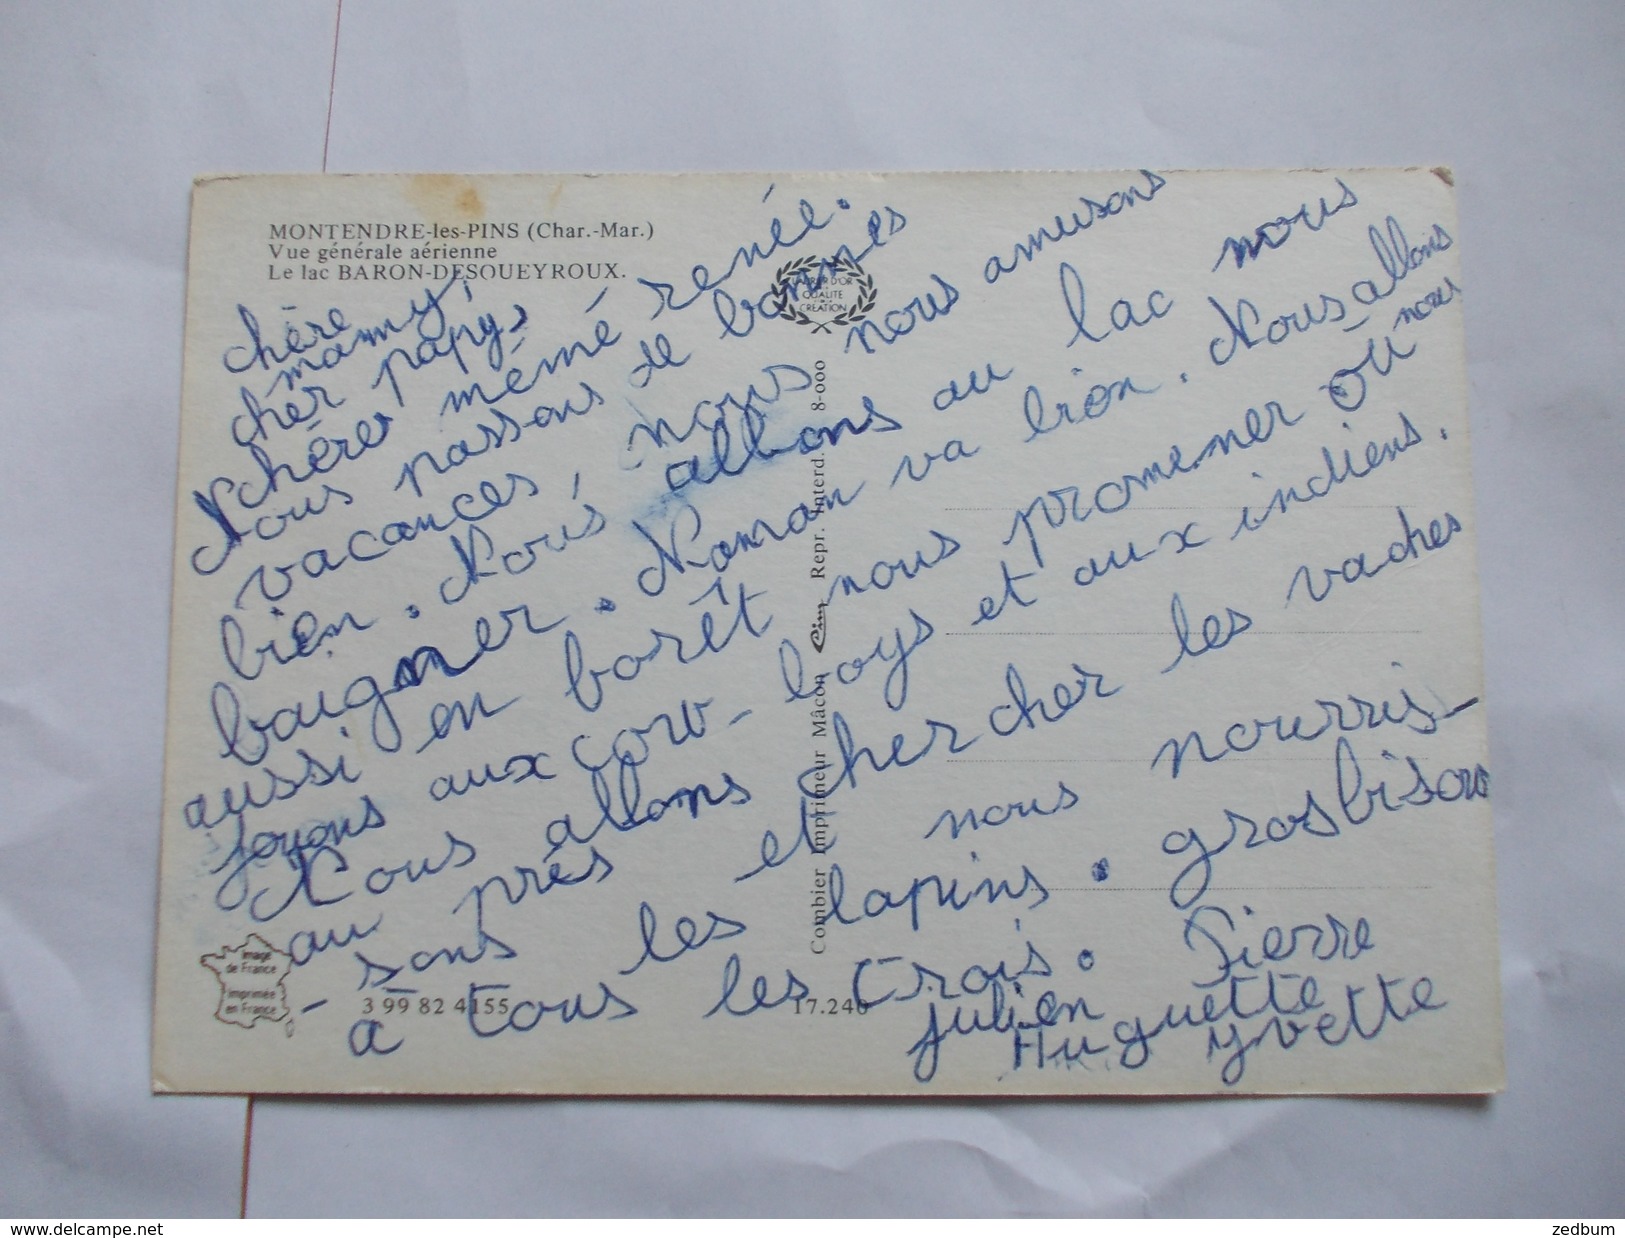 MONTENDRE-les-PINS (Char.-Mar.)
Vue générale aérienne
Le lac BARON-DESQUEYROUX.
chère
mammy,
cher papy,
chère mémé renée.
Nous passons de bonnes
vacances, nous nous amusons
bien. Nous allons au lac nous
baigner. Noman va bien. Nous allons
aussi en borêt nous promener où nous
jouons aux cow-boys et aux indiens.
Nous allons chercher les vaches
au près et nous nourris-
-sons les lapins. gros bisous
a tous les trois. Pierre
julien
Huguette
yvette
LAURIER D'OR
QUALITE
CRÉATION
Combier Imprimeur Mâcon Cim Repr. Interd. 8-000
Image
de France
Imprimée
en France
3 99 82 4155
17.240
www.delcampe.net
zedbum